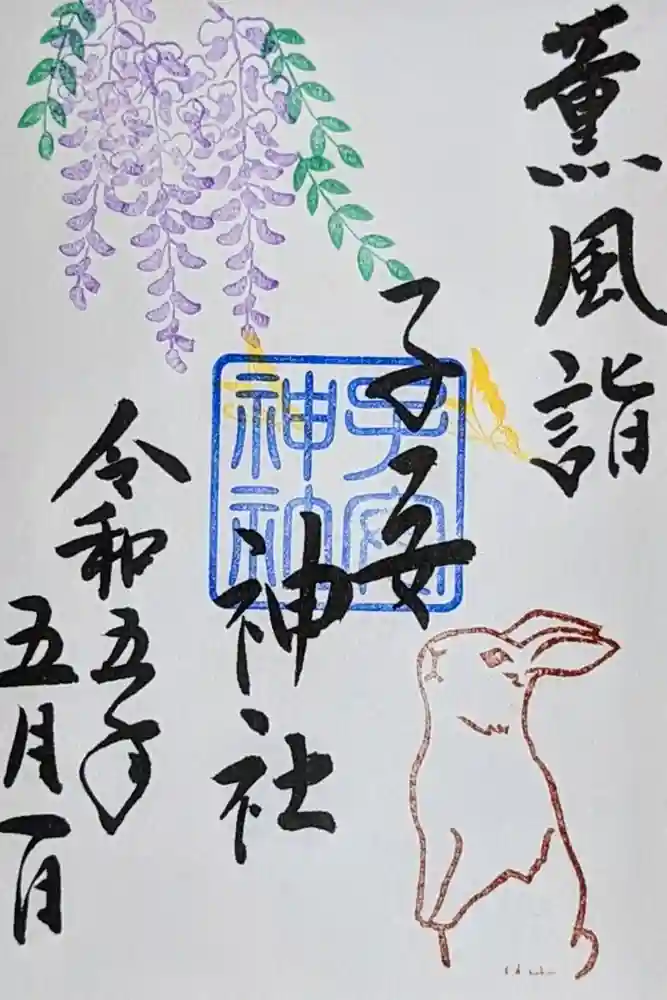 薫風詣
子安
神社
子安
神社
令和五年
五月一日